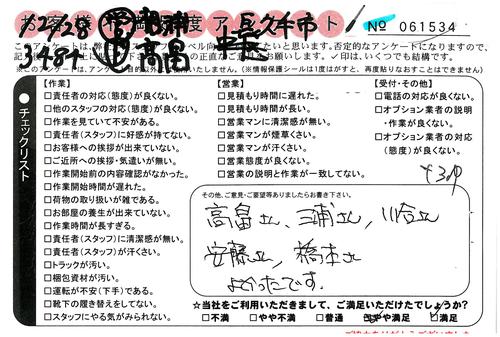 お客様不満足度アンケート
12/28 三浦 長久手市
3484 高畠
№ 061534
【作業】
□責任者の対応(態度)が良くない。
□他のスタッフの対応(態度)が良くない。
□作業を見ていて不安がある。
□責任者(スタッフ)に好感が持てない。
□お客様への挨拶が出来ていない。
□ご近所への挨拶・気遣いが無い。
□作業開始前の内容確認がなかった。
□作業開始時間が遅れた。
□荷物の取り扱いが雑である。
□お部屋の養生が出来ていない。
□作業時間が長すぎる。
□責任者(スタッフ)に清潔感が無い。
□責任者(スタッフ)が汗くさい。
□トラックが汚い。
□梱包資材が汚い。
□運転が不安(下手)である。
□靴下の履き替えをしてない。
□スタッフにやる気がみられない。
チェックリスト
【営業】
□見積もり時間に遅れた。
□見積もり時間が長い。
□営業マンに清潔感が無い。
□営業マンが煙草くさい。
□営業マンが汗くさい。
□営業態度が良くない。
□営業の説明と作業が一致してない。
【受付・その他】
□電話の対応が良くない。
□オプション業者の説明
・作業が良くない。
□オプション業者の対応
(態度)が良くない。
その他、ご意見・ご要望等ありましたらお書き下さい。
高畠さん、三浦さん、川合さん
安藤さん、橋本さん
よかったです。
★当社をご利用いただきまして、ご満足いただけたでしょうか?
□不満 □やや不満 □普通 □やや満足 □満足